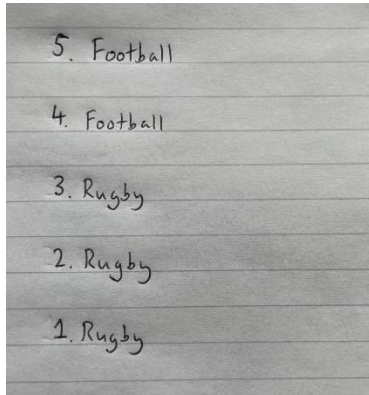 5. Football
4. Football
3. Rugby
2. Rugby
1. Rugby